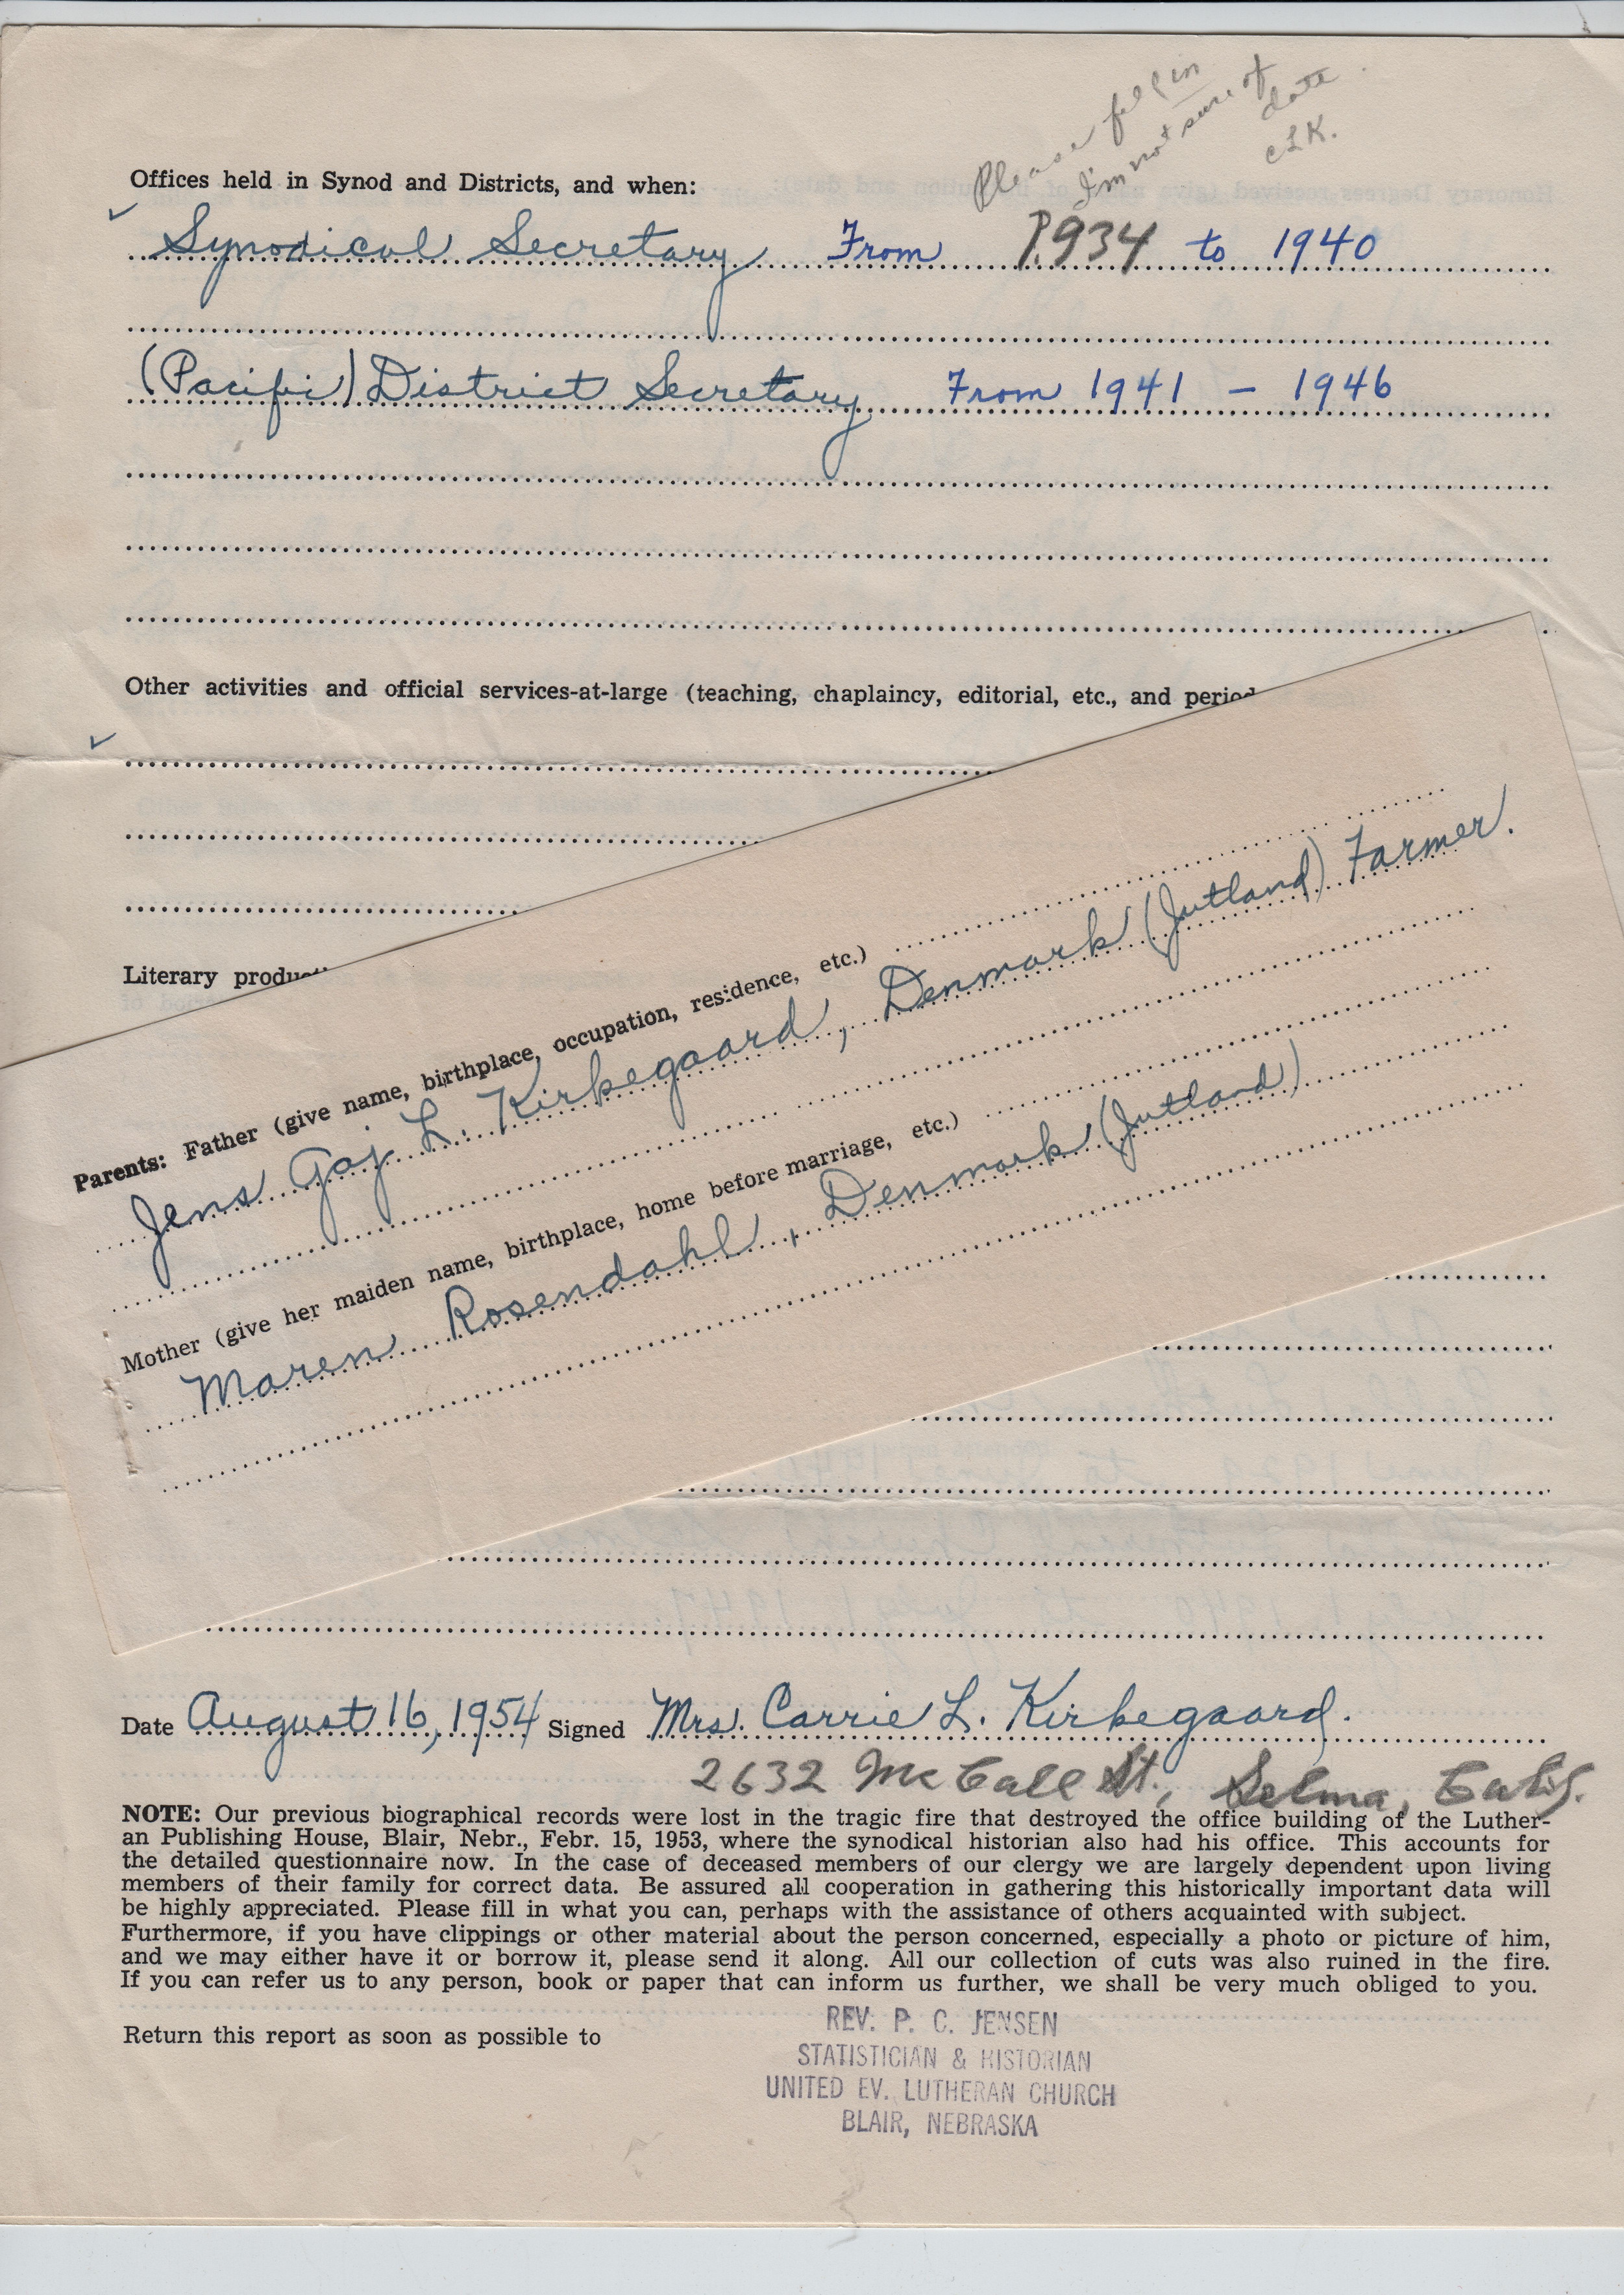 Please fill in
I'm not sure of
date
CLK.
Offices held in Synod and Districts, and when:
Synodical Secretary From 1934 to 1940
(Pacific) District Secretary From 1941 - 1946
Other activities and official services-at-large (teaching, chaplaincy, editorial, etc., and period
Literary produc
Parents: Father (give name, birthplace, occupation, residence, etc.)
Jens Gaj L. Kirkegaard, Denmark (Jutland) Farmer.
Mother (give her maiden name, birthplace, home before marriage, etc.)
Maren Rosendahl, Denmark (Jutland)
Date August 16, 1954 Signed Mrs. Carrie L. Kirkegaard.
2632 McCall St., Selma, Calif.
NOTE: Our previous biographical records were lost in the tragic fire that destroyed the office building of the Luther-
an Publishing House, Blair, Nebr., Febr. 15, 1953, where the synodical historian also had his office. This accounts for
the detailed questionnaire now. In the case of deceased members of our clergy we are largely dependent upon living
members of their family for correct data. Be assured all cooperation in gathering this historically important data will
be highly appreciated. Please fill in what you can, perhaps with the assistance of others acquainted with subject.
Furthermore, if you have clippings or other material about the person concerned, especially a photo or picture of him,
and we may either have it or borrow it, please send it along. All our collection of cuts was also ruined in the fire.
If you can refer us to any person, book or paper that can inform us further, we shall be very much obliged to you.
Return this report as soon as possible to
REV. P. C. JENSEN
STATISTICIAN & HISTORIAN
UNITED EV. LUTHERAN CHURCH
BLAIR, NEBRASKA